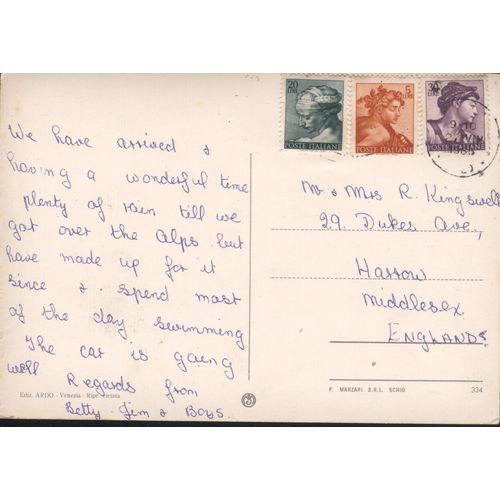 We have arrived &
having a wonderful time
plenty of rain till we
got over the Alps but
have made up for it
since & spend most
of the day swimming
The car is going
well
Regards from
Betty Jim & Boys.
Ediz. ARDO - Venezia - Ripr. vietata
20
LIRE
POSTE ITALIANE
5
LIRE
POSTE ITALIANE
30
LIRE
POSTE ITALIANE
Mr & Mrs R. Kingswell
29. Dukes Ave.,
Harrow
Middlesex.
ENGLAND
P. MARZARI S.R.L. SCHIO
334